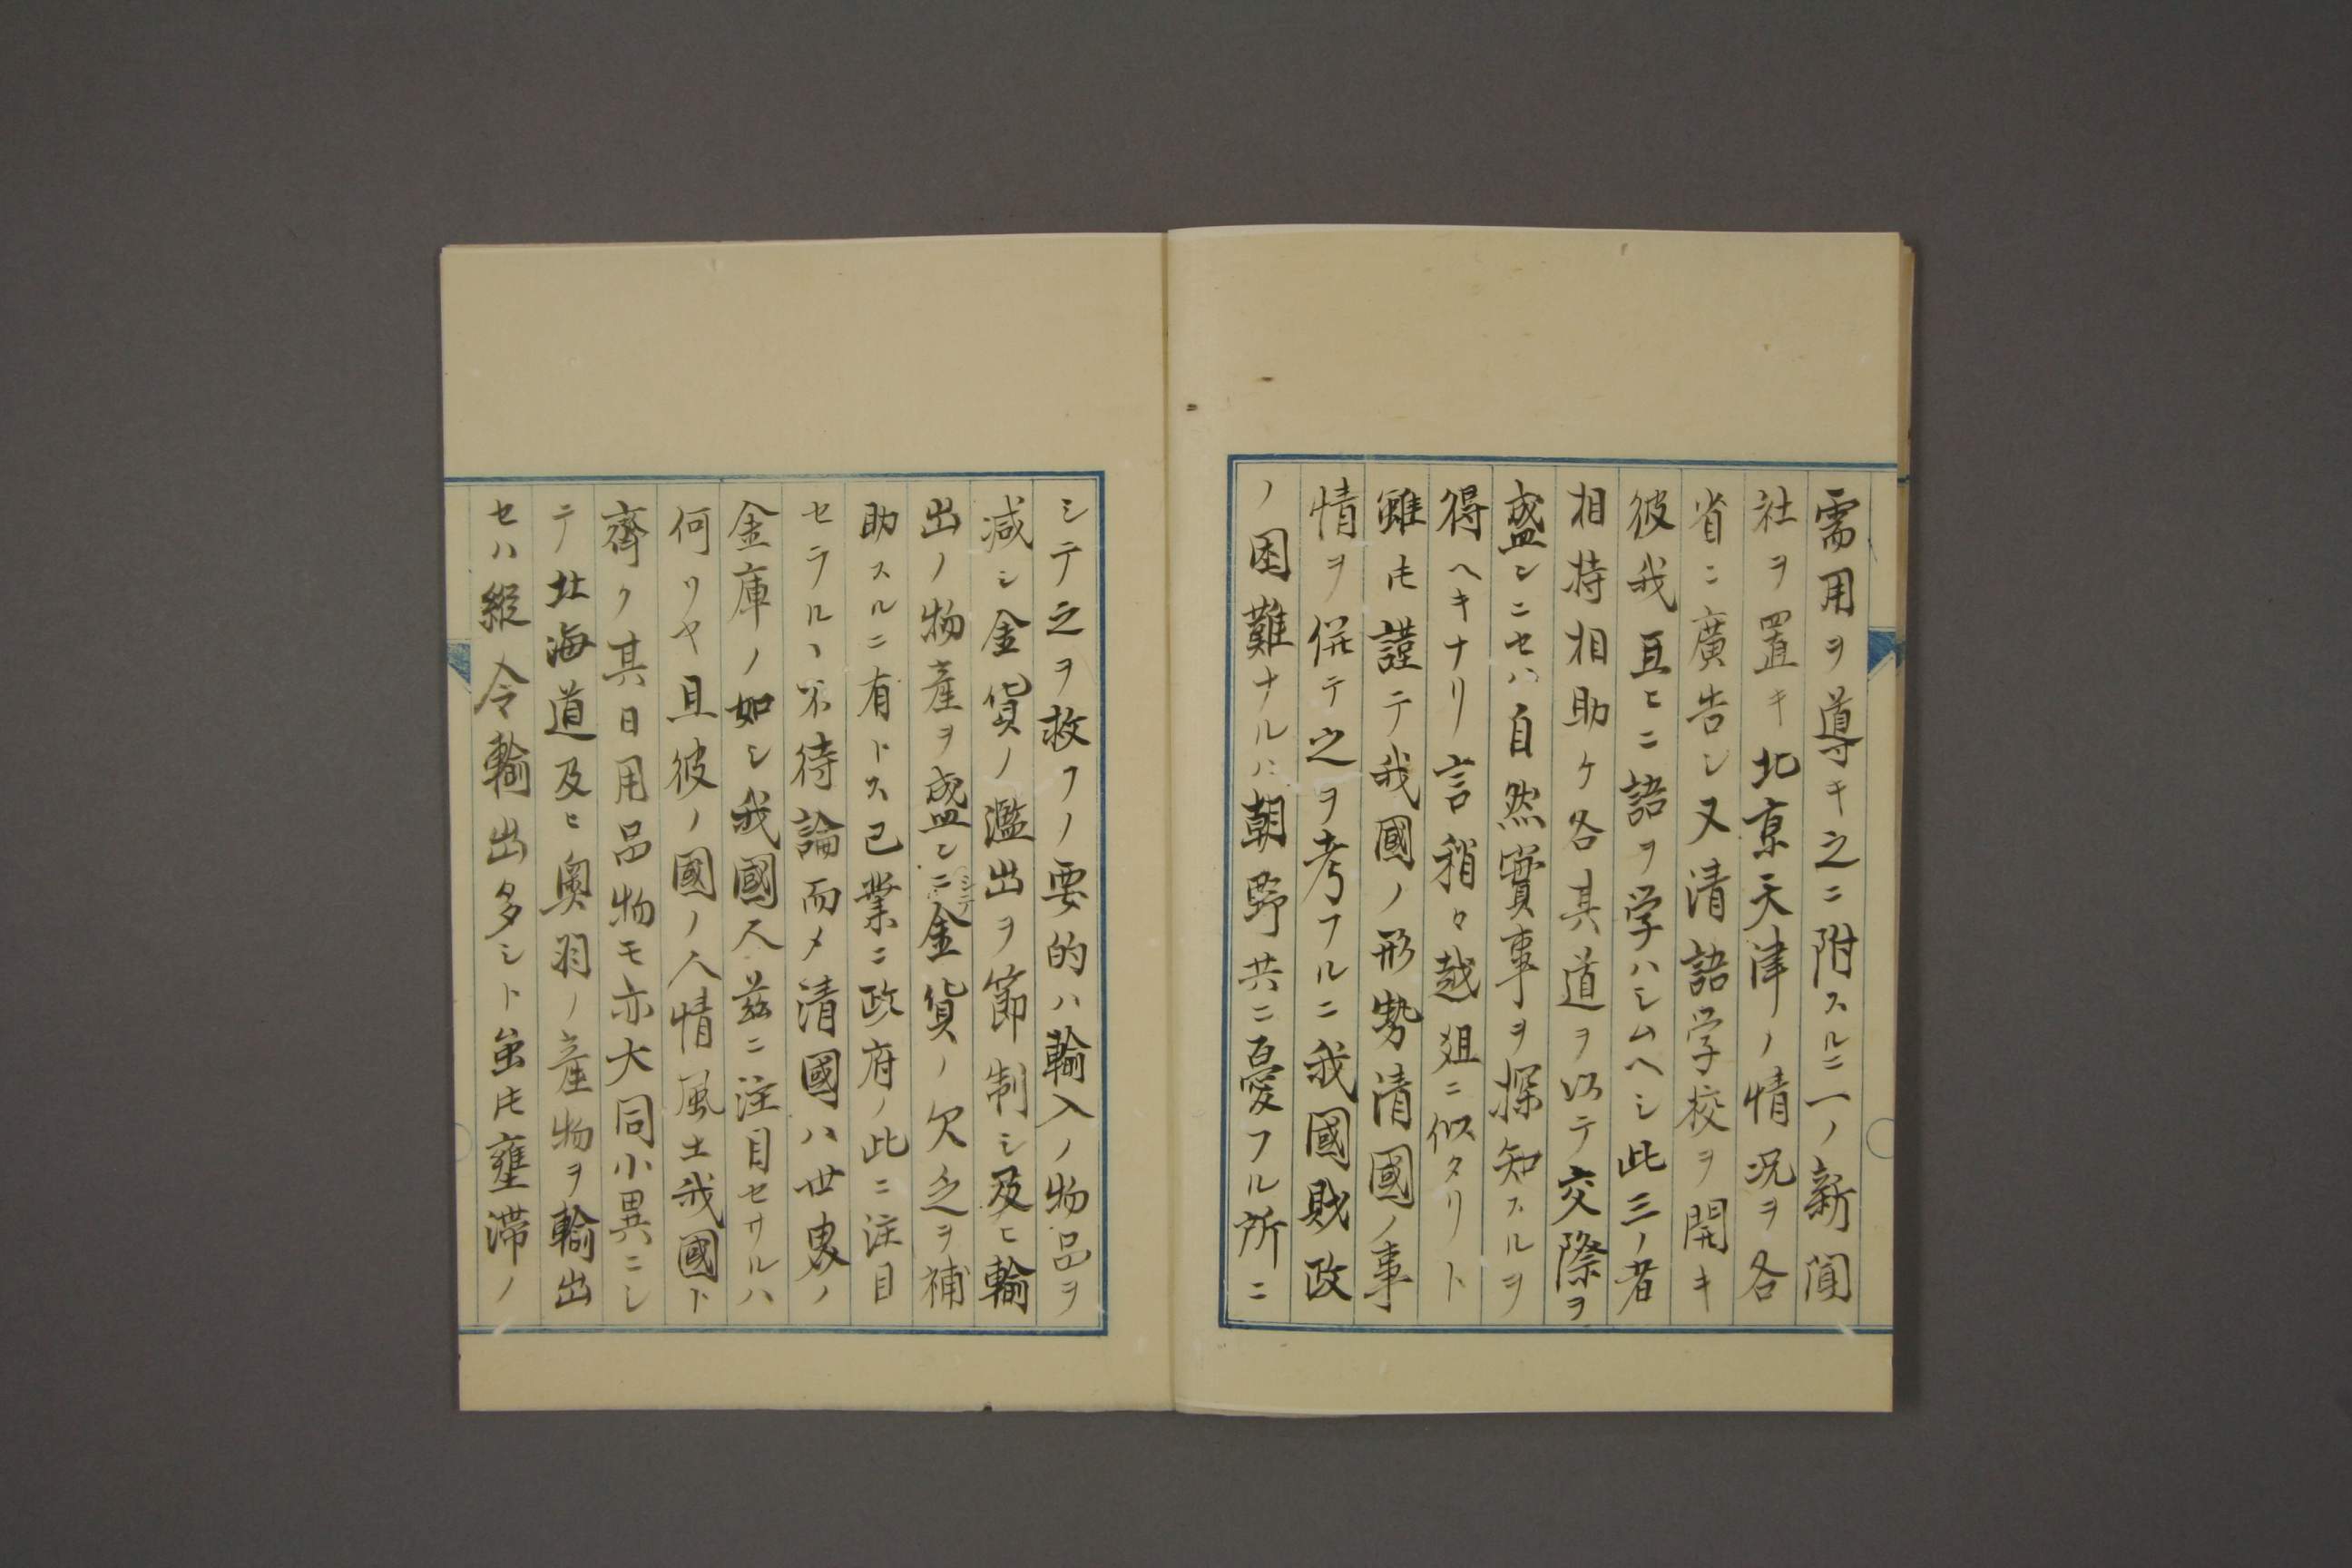 需用ヲ導キ之ニ附スルニ一ノ新聞
社ヲ置キ北京天津ノ情況ヲ各
省ニ廣告シ又清語学校ヲ開キ
彼我互ヒニ語ヲ学ハシムヘシ此三ノ者
相待相助ケ各其道ヲ以テ交際ヲ
盛ンニセハ自然實事ヲ探知スルヲ
得ヘキナリ言稍々越俎ニ似タリト
雖𪜈謹テ我國ノ形勢清國ノ事
情ヲ併テ之ヲ考フルニ我國財政
ノ困難ナルハ朝野共ニ憂フル所ニ
シテ之ヲ救フノ要的ハ輸入ノ物品ヲ
减シ金貨ノ濫出ヲ節制シ及ヒ輸
出ノ物産ヲ盛ンニシテ金貨ノ欠乏ヲ補
助スルニ有トス已業ニ政府ノ此ニ注目
セラルヽ不待論而メ清國ハ世界ノ
金庫ノ如シ我國人茲ニ注目セサルハ
何リヤ且彼ノ國ノ人情風土我國ト
齊ク其日用品物モ亦大同小異ニシ
テ北海道及ヒ奥羽ノ産物ヲ輸出
セハ縦令輸出多シト虽𪜈壅滞ノ